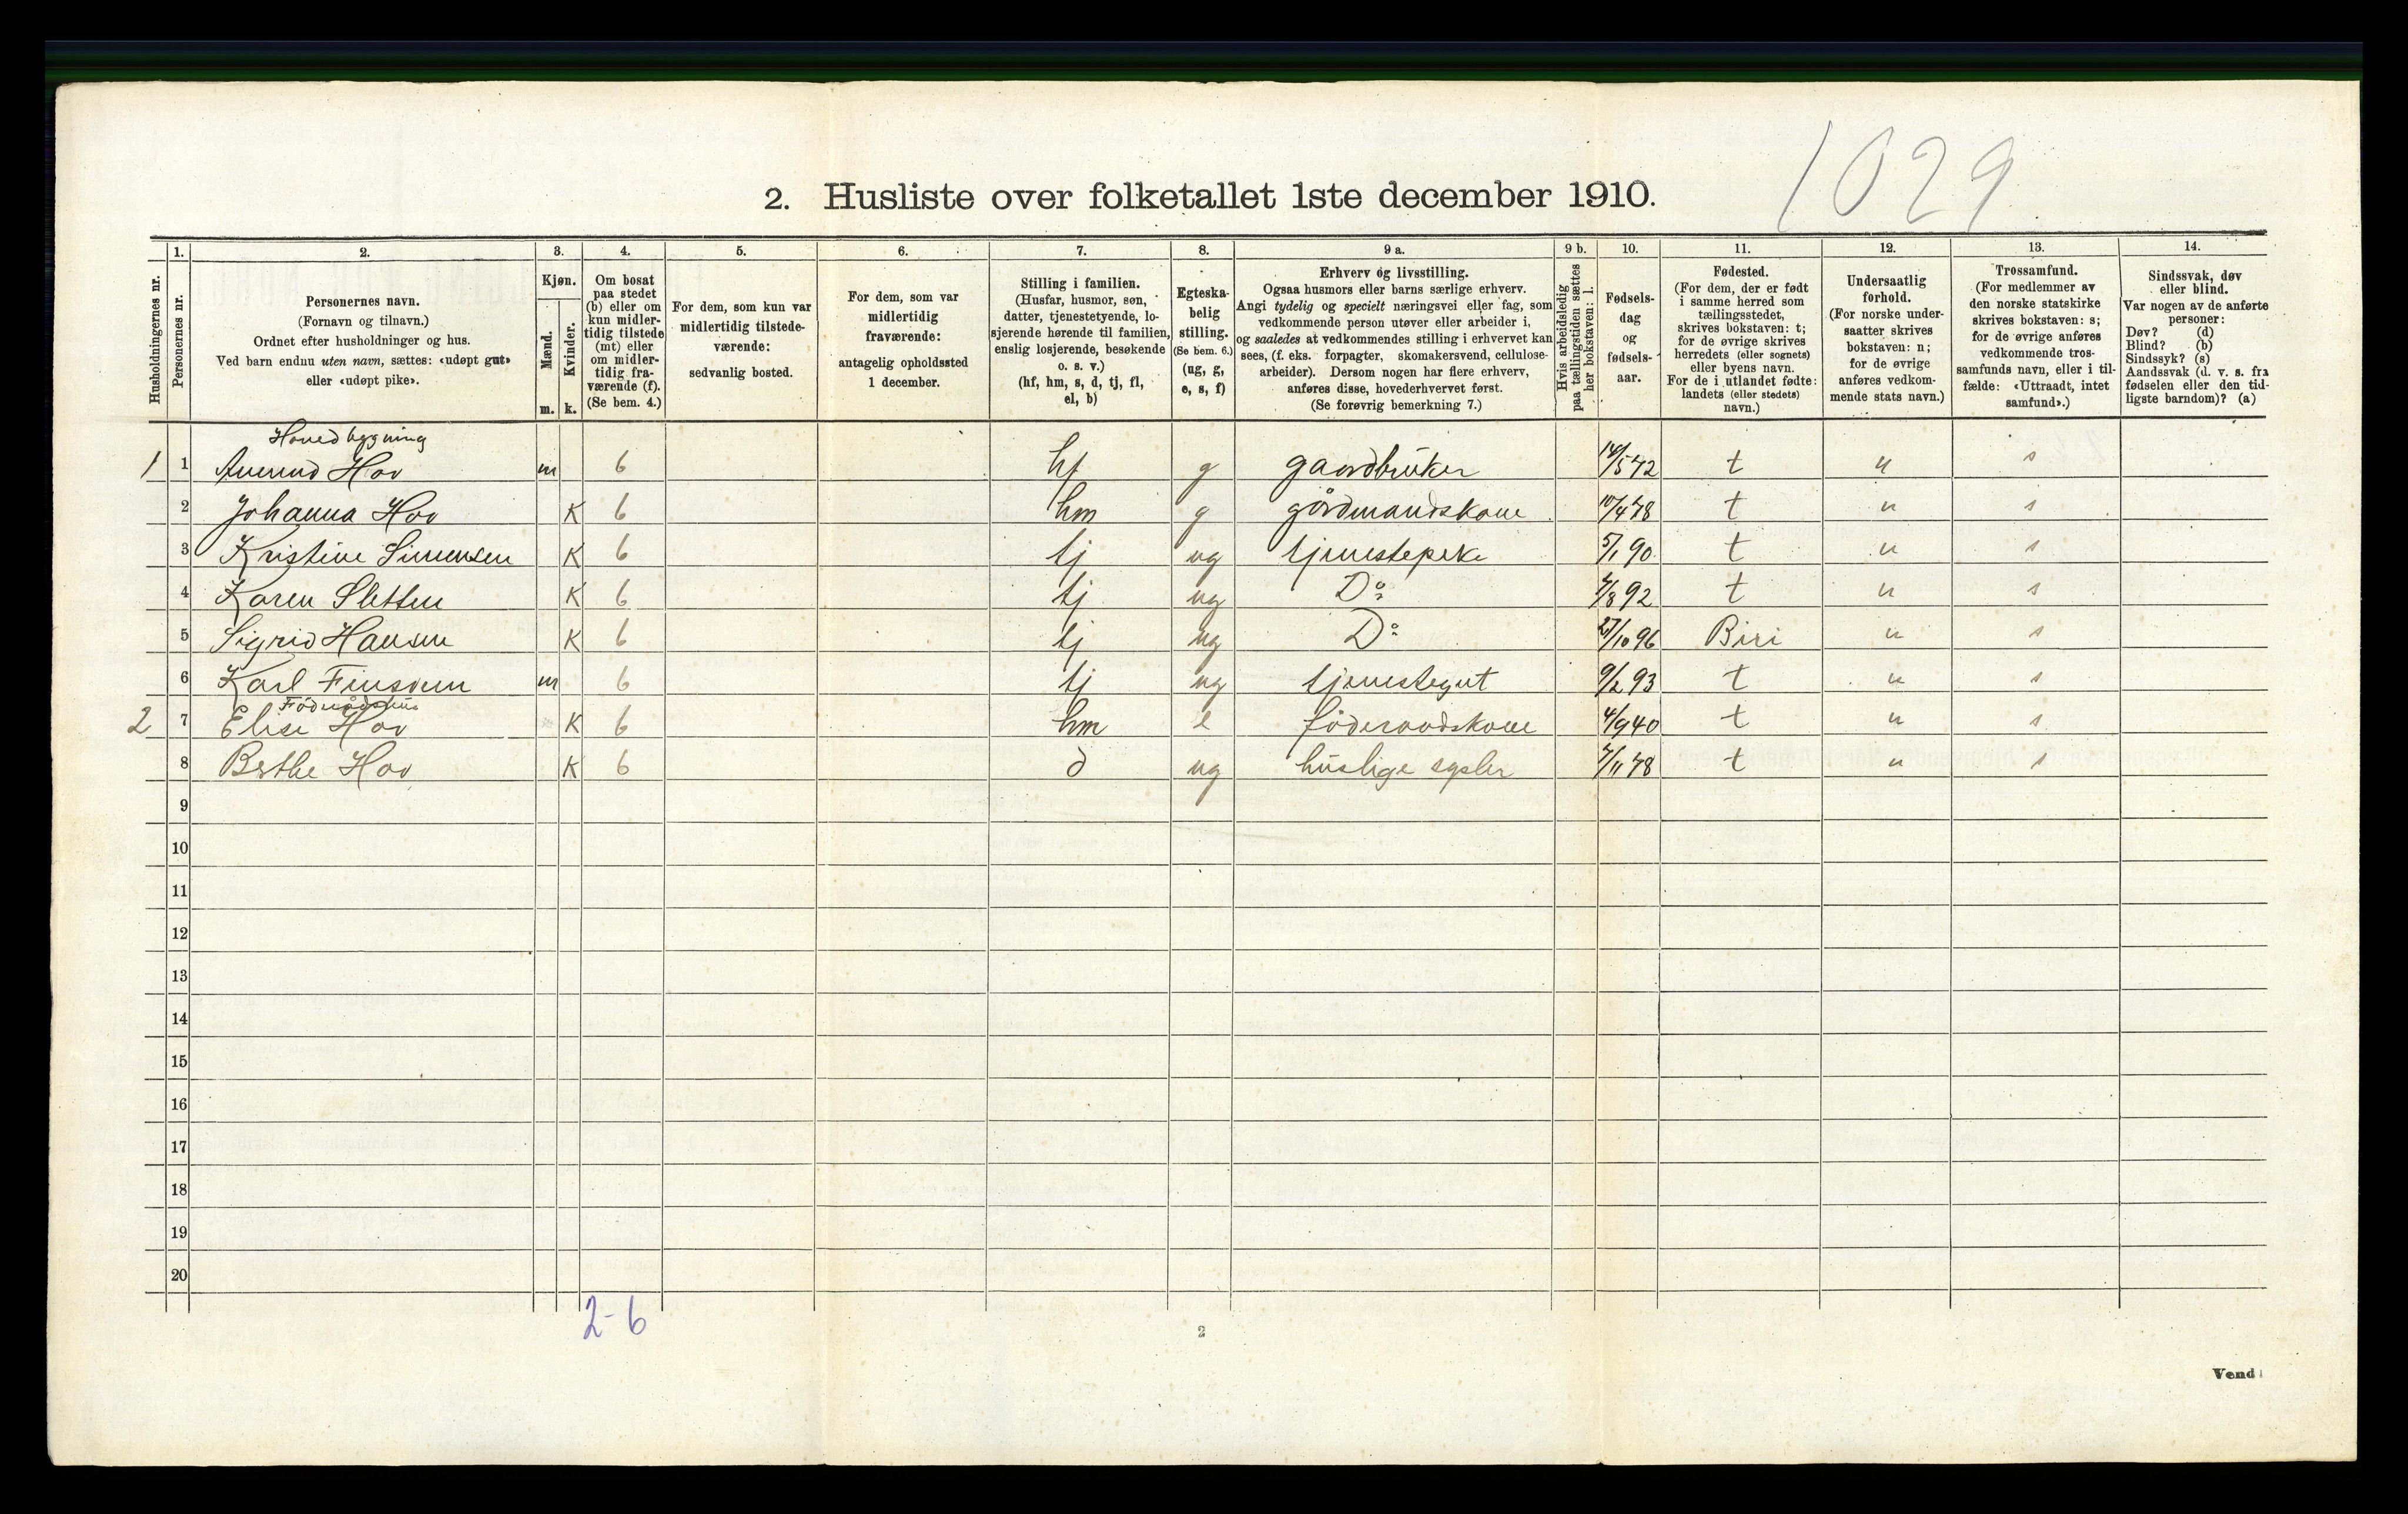 1029
2. Husliste over folketallet 1ste december 1910.
Husholdningernes nr.
1. Personernes nr.
2. Personernes navn.
(Fornavn og tilnavn.)
Ordnet efter husholdninger og hus.
Ved barn endnu uten navn, sættes: «udøpt gut»
eller «udøpt pike».
3. Kjøn.
Mænd. m.
Kvinder. k.
4. Om bosat
paa stedet
(b) eller om
kun midler-
tidig tilstede
(mt) eller
om midler-
tidig fra-
værende (f).
(Se bem. 4.)
5. For dem, som kun var
midlertidig tilstede-
værende:
sedvanlig bosted.
6. For dem, som var
midlertidig
fraværende:
antagelig opholdssted
1 december.
7. Stilling i familien.
(Husfar, husmor, søn,
datter, tjenestetyende, lo-
sjerende hørende til familien,
enslig losjerende, besøkende
o. s. v.)
(hf, hm, s, d, tj, fl,
el, b)
8. Egteska-
belig
stilling.
(Se bem. 6.)
(ug, g,
e, s, f)
9 a. Erhverv og livsstilling.
Ogsaa husmors eller barns særlige erhverv.
Angi tydelig og specielt næringsvei eller fag, som
vedkommende person utøver eller arbeider i,
og saaledes at vedkommendes stilling i erhvervet kan
sees, (f. eks. forpagter, skomakersvend, cellulose-
arbeider). Dersom nogen har flere erhverv,
anføres disse, hovederhvervet først.
(Se forøvrig bemerkning 7.)
9 b. Hvis arbeidsledig
paa tællingstiden sættes
her bokstaven: l.
10. Fødsels-
dag
og
fødsels-
aar.
11. Fødested.
(For dem, der er født
i samme herred som
tællingsstedet,
skrives bokstaven: t;
for de øvrige skrives
herredets (eller sognets)
eller byens navn.
For de i utlandet fødte:
landets (eller stedets)
navn.)
12. Undersaatlig
forhold.
(For norske under-
saatter skrives
bokstaven: n;
for de øvrige
anføres vedkom-
mende stats navn.)
13. Trossamfund.
(For medlemmer av
den norske statskirke
skrives bokstaven: s;
for de øvrige anføres
vedkommende tros-
samfunds navn, eller i til-
fælde: «Uttraadt, intet
samfund».)
14. Sindssvak, døv
eller blind.
Var nogen av de anførte
personer:
Døv? (d)
Blind? (b)
Sindssyk? (s)
Aandssvak (d. v. s. fra
fødselen eller den tid-
ligste barndom)? (a)
Hovedbygning
1 1 Hov m b hf g gaardbruker 14/5 72 t n s
2 Johanna Hov K b hm g gårdmandskone 10/4 78 t n s
3 Kristine Simensen K b tj ug tjenestepike 5/1 90 t n s
4 Karen Sletten K b tj ug Do 4/8 92 t n s
5 Sigrid Hansen K b tj ug Do 27/10 96 Biri n s
6 Karl m b tj ug tjenestegut 9/2 93 t n s
Föderådshus
2 7 Elise Hov K b hm e föderaadskone 4/9 40 t n s
8 Berthe Hov K b d ug huslige sysler 4/11 78 t n s
9
10
11
12
13
14
15
16
17
18
19
20
2-6
2
Vend